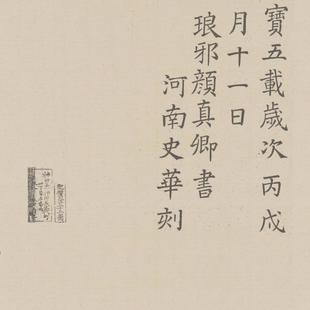 寶五載歲次丙戌
月十一日
琅邪顔真卿書
河南史華刻